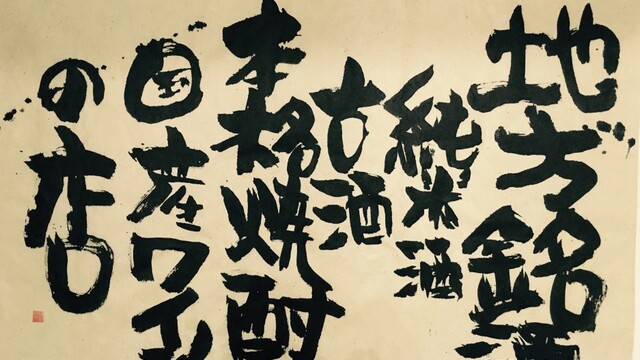 地方銘酒
純米酒
古酒
本格焼酎
国産ワイン
の店